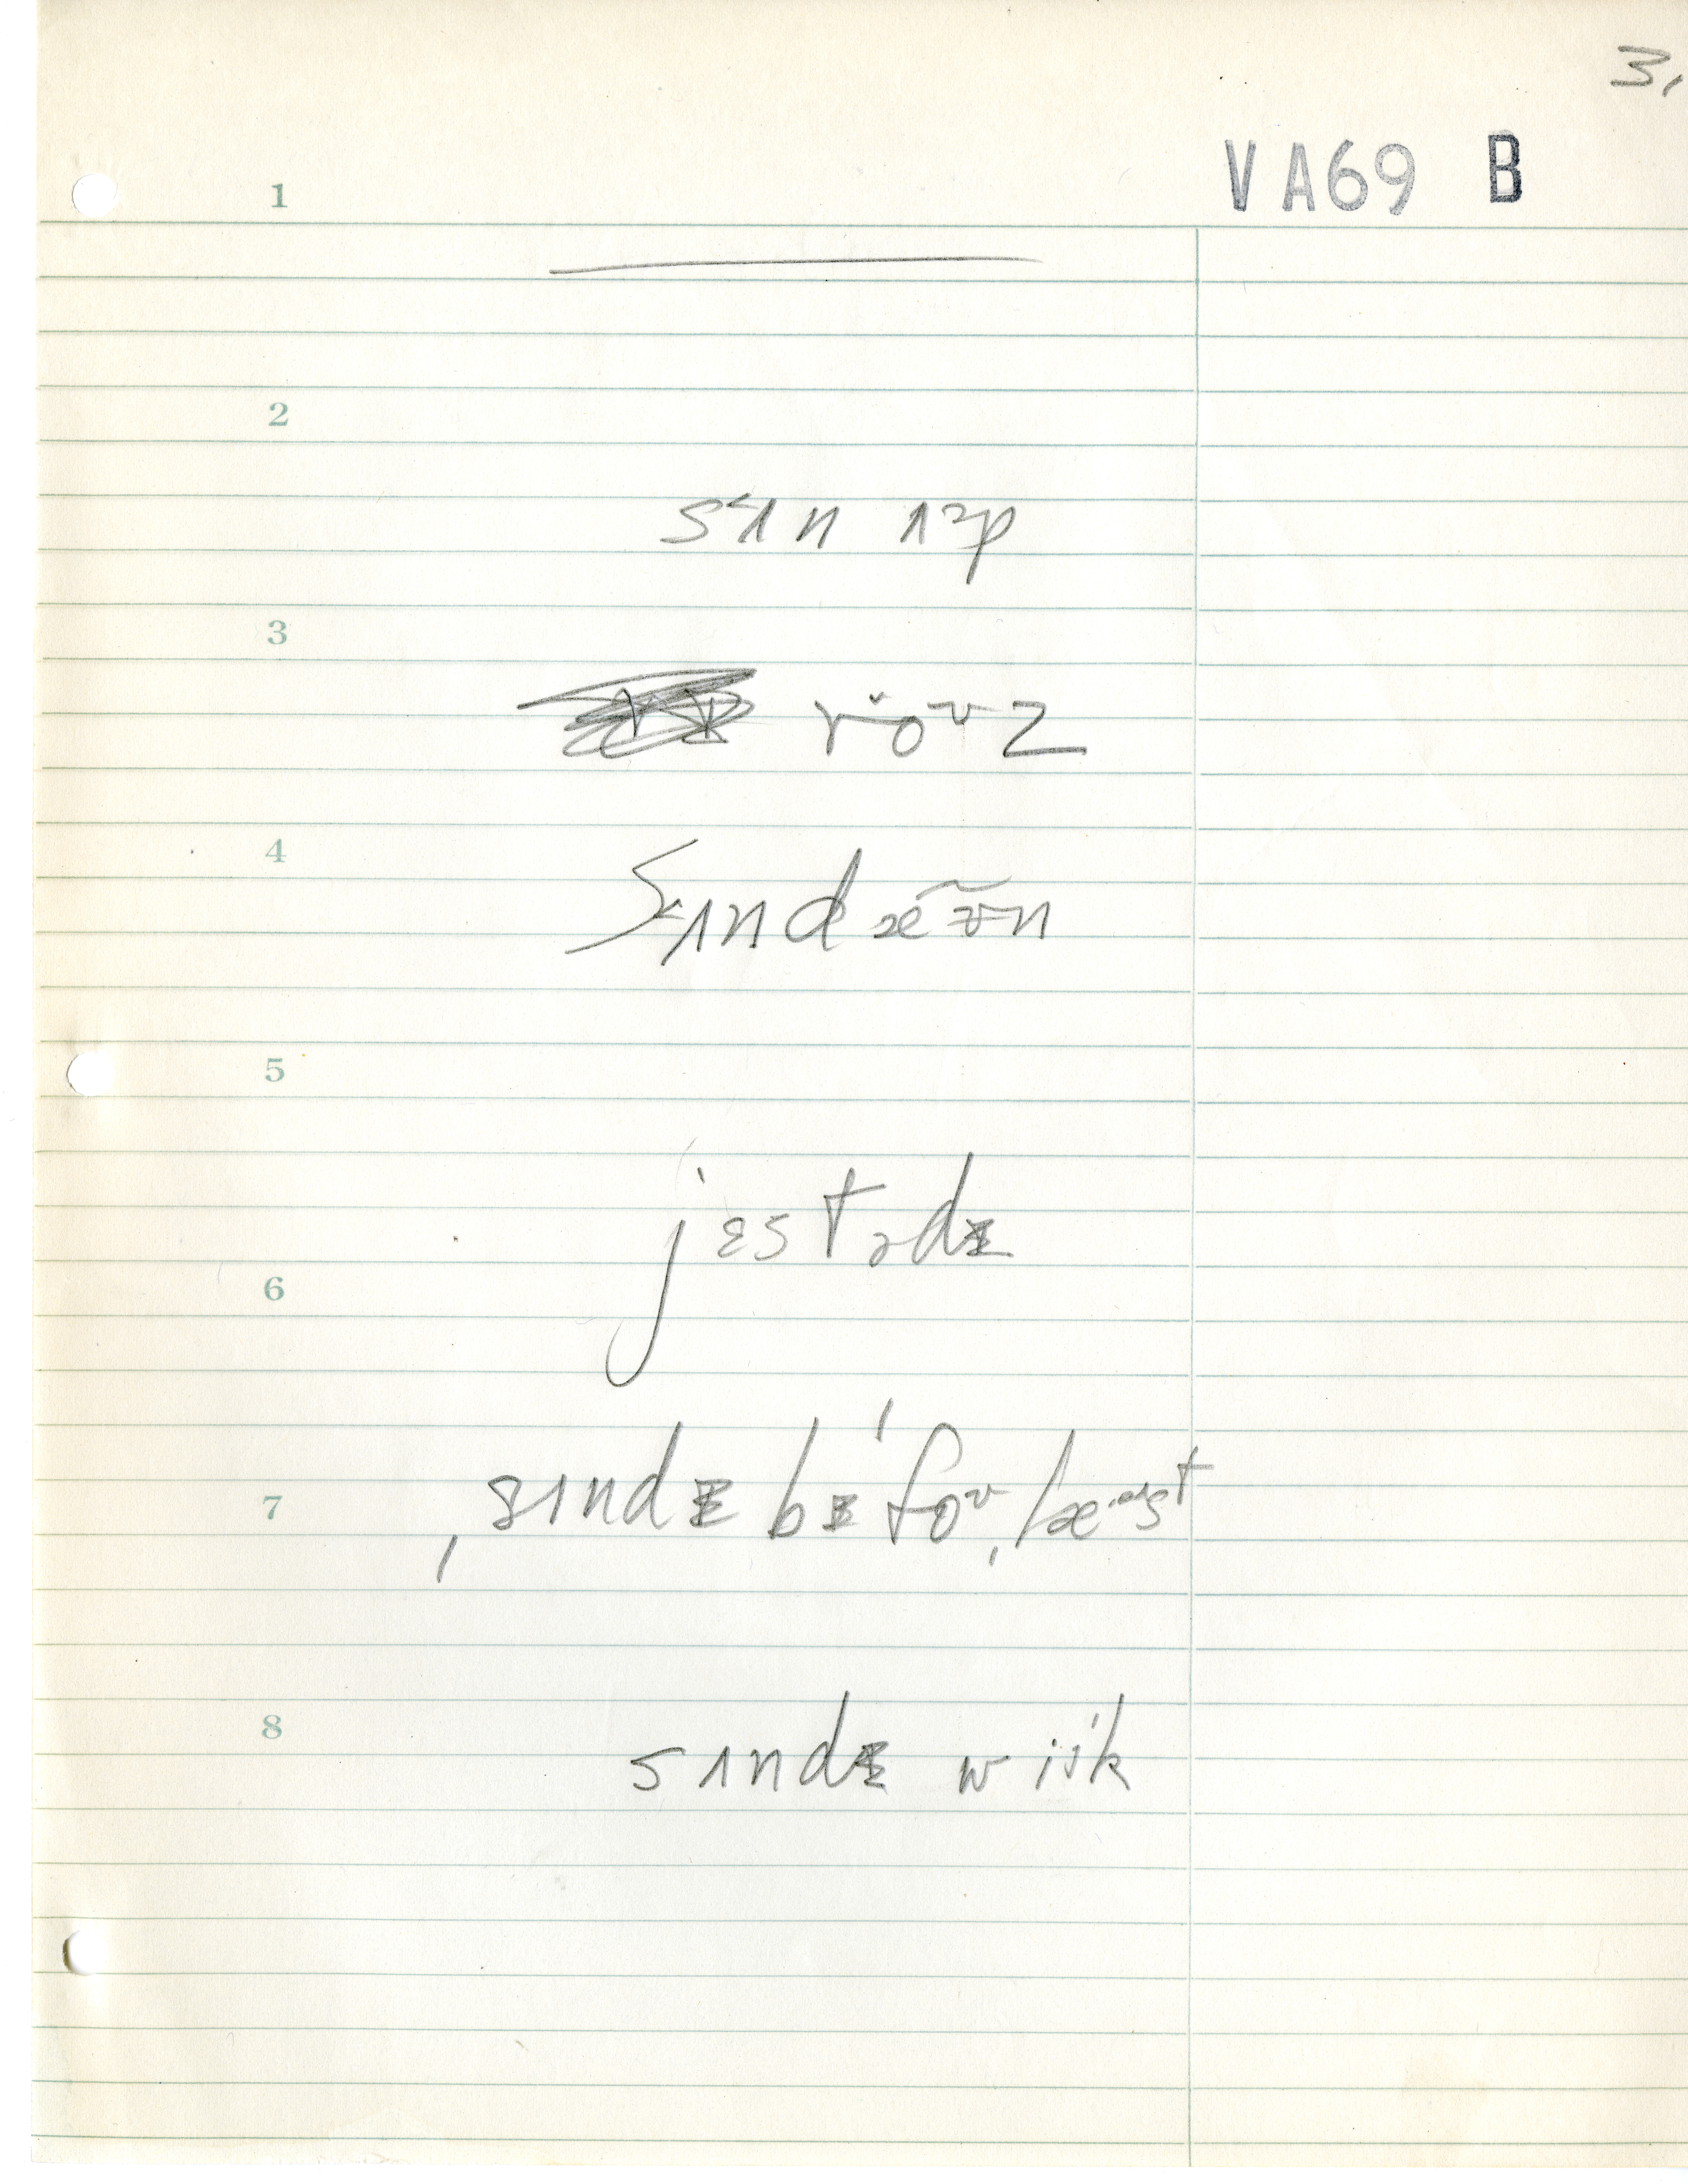 3.
VA69 B
1
2
sʌn ʌp
3
roʊz
4
sʌndæʊn
5
jɛstɚdɪ
6
7
sʌndɪ bɪˈfoɚ læst
8
sʌndɪ wiik